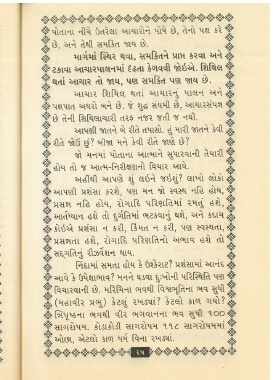 પોતાના નીચે ઉતરેલા આચારોને પોષે છે, તેનો પક્ષ કરે
છે, અને તેથી સમકિત જાય છે.
માર્ગમાં સ્થિર થવા, સમકિતને પ્રાપ્ત કરવા અને
ટકાવા આચારપાલનમાં દઢતા કેળવવી જોઇએ. શિથિલ
થતાં આચાર તો જાય, પણ સમકિત પણ જાય છે.
આચાર શિથિલ થતાં આચારનું પાલન અને
પક્ષપાત અઘરો બને છે. જે શુદ્ધ સંયમી છે, આચારસંપન્ન
છે તેની શિથિલાચારી તરફ નજર જતી જ નથી.
આપણી જાતને બે રીતે તપાસો. હું મારી જાતને કેવી
રીતે જોઉં છું ? બીજા મને કેવી રીતે જાણે છે?
જો મનમાં પોતાના આત્માને સુધારવાની તૈયારી
હોય તો જ આત્મ-નિરીક્ષણનો વિચાર આવે.
અહીંથી આપણે શું લઇને જઇશું? લાખો લોકો
આપણી પ્રશંસા કરશે, પણ મન જો સ્વસ્થ નહિ હોય,
પ્રસન્ન નહિ હોય, રોગાદિ પરિણતિમાં રમતું હશે,
આર્તધ્યાન હશે તો દુર્ગતિમાં ભટકવાનું થશે. અને કદાચ
કોઇએ પ્રશંસા ન કરી, કિંમત ન કરી, પણ સ્વસ્થતા,
પ્રસન્નતા હશે, રોગાદિ પરિણતિનો અભાવ હશે તો
સદ્ગતિનું રીઝર્વેશન થાય.
નિંદામાં સમતા હોય કે ઉશ્કેરાટ? પ્રશંસામાં આનંદ
આવે કે ઉપેક્ષાભાવ? મનને ઘડવા દુઃખોની પરિસ્થિતિ પણ
વિચારવાની છે. મરિચિના ભવથી વિશ્વભૂતિના ભવ સુધી
(મહાવીર પ્રભુ) કેટલું રખડ્યાં? કેટલો કાળ ગયો?
ત્રિપૃષ્ઠના ભવથી વીર ભગવાનના ભવ સુધી ૧૦૦
સાગરોપમ. કોડાકોડી સાગરોપમ ૧૧૮ સાગરોપમમાં
ઓછા, એટલો કાળ ધર્મ વિના રખડ્યાં.
૨૫